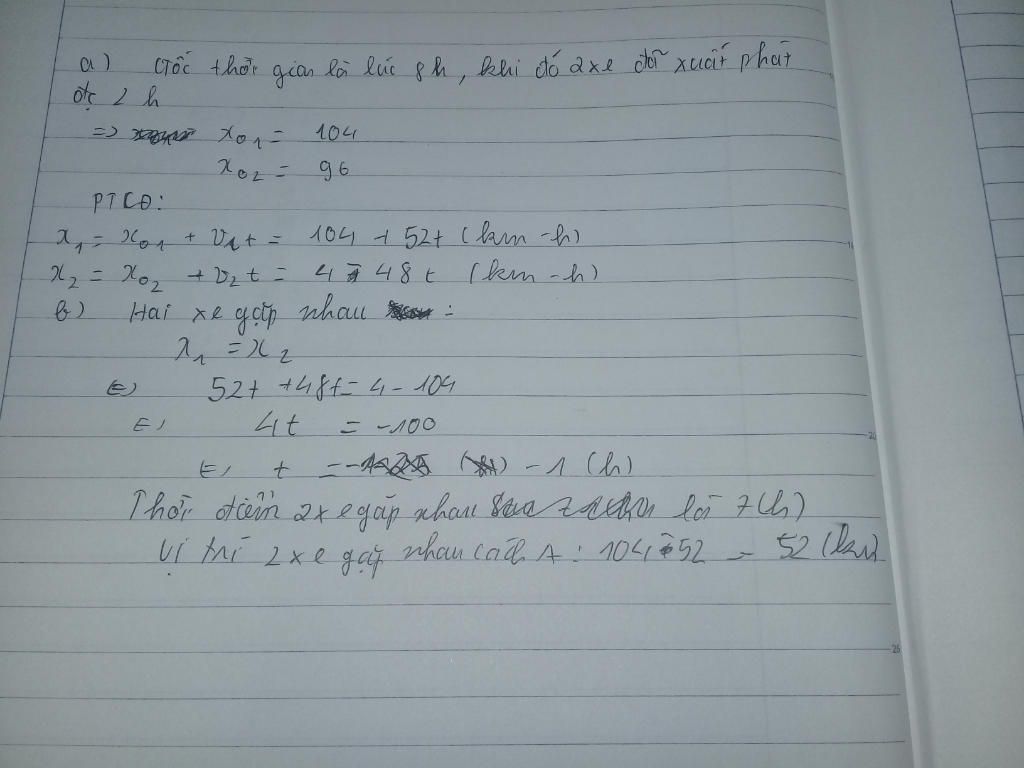 a) Gốc thời gian là lúc 8h, khi đó 2 xe đã xuất phát
đc 2 h
=> x01 = 104
x02 = 96
PTCĐ:
x1 = x01 + v1t = 104 + 52t (km-h)
x2 = x02 + v2t = 4 - 48t (km-h)
b) Hai xe gặp nhau :
x1 = x2
<=> 52t + 48t = 4 - 104
<=> 4t = -100
<=> t = -1 (h)
Thời điểm 2 xe gặp nhau là 7(h)
Vị trí 2 xe gặp nhau cách A : 104 - 52 = 52 (km)